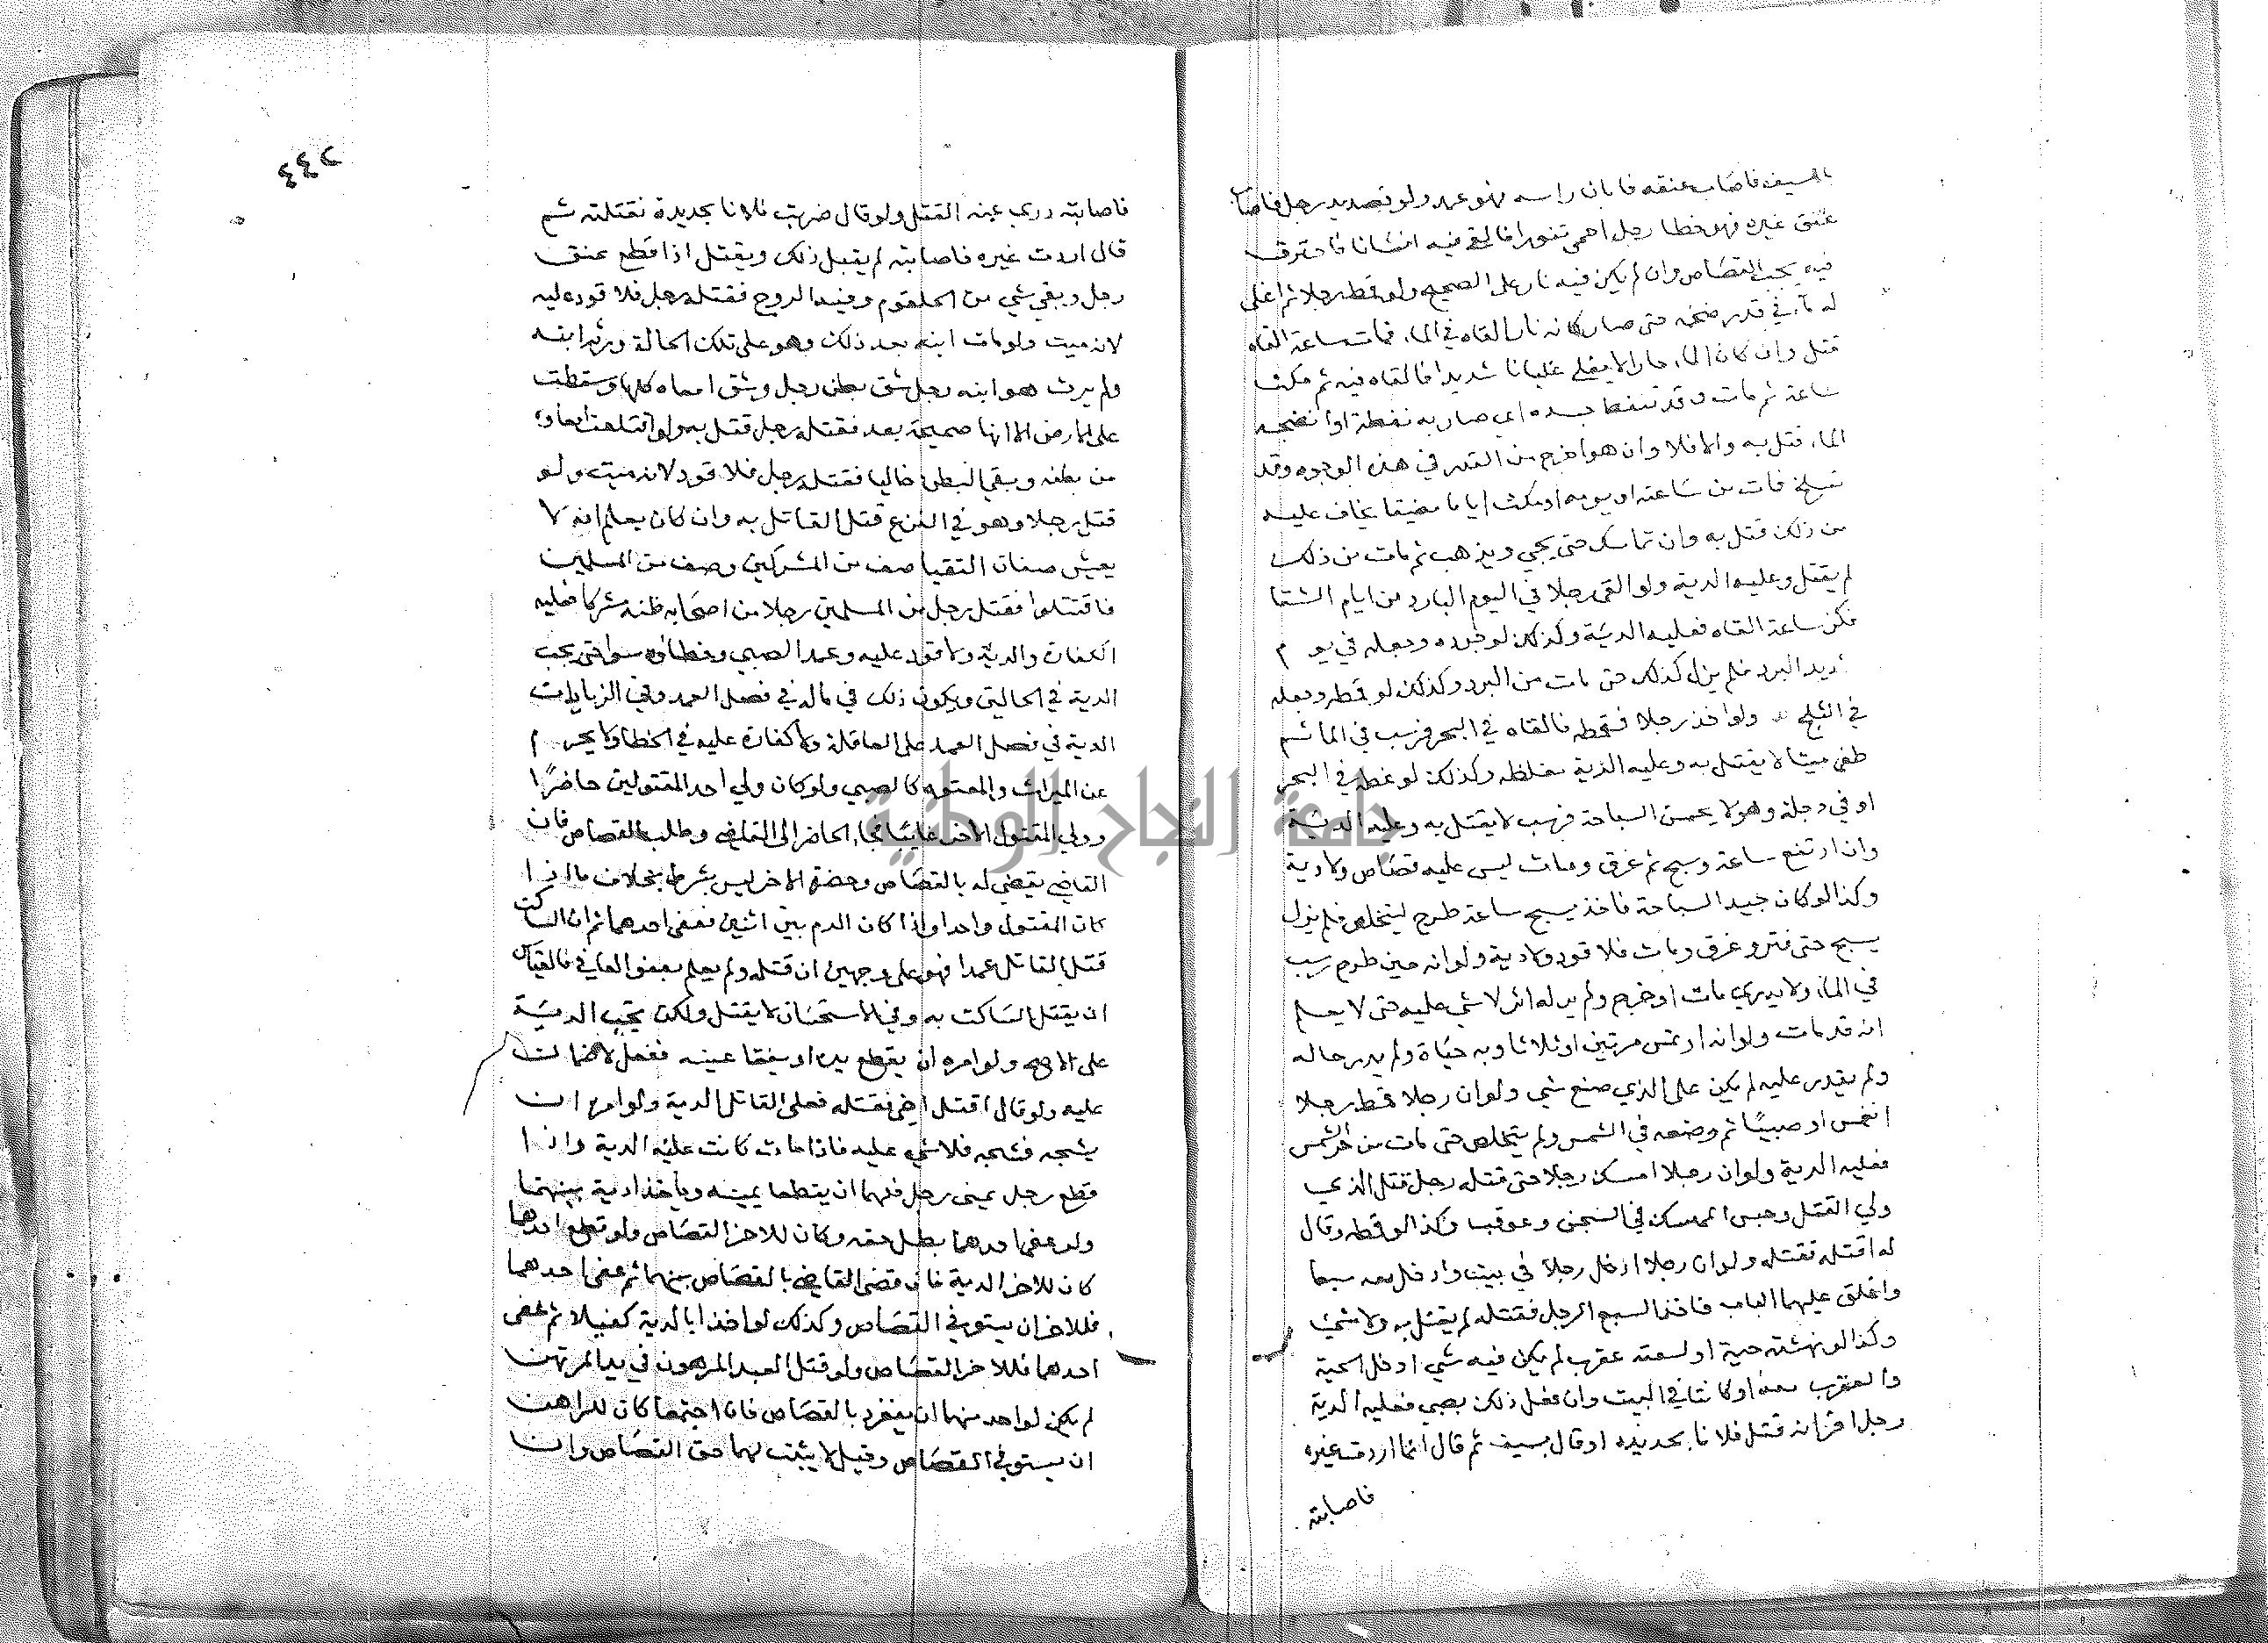 بالسيف فاصاب عنقه فابان راسه فهو عمد ولو قصد يد رجل فاصاب
عنق غيره فهو خطا رجل احمى تنورا فالقى فيه انسانا فاحترق
فيه يجب القصاص وان لم يكن فيه نار على الصحيح ولو قمط رجلا ثم اغلى
له ماء في قدر ضخمه حتى صار كانه نار القاه في الماء فمات ساعة القاه
قتل وان كان الماء حار لا يغلي غليانا شديدا فالقاه فيه ثم مكث
ساعة ثم مات وقد تنفط جسده اي صار به نفطة او انضجه
الماء قتل به والا فلا وان هو اخرج من القدر في هذه الوجوه وقد
تسلخ فمات من ساعته او يومه او مكث اياما مضيقا يخاف عليه
من ذلك قتل به وان تماسك حتى يجي ويذهب ثم مات من ذلك
لم يقتل وعليه الدية ولو القى رجلا في اليوم البارد من ايام الشتا
فكز ساعة القاه فعليه الدية وكذلك لو جرده وجعله في يوم
شديد البرد فلم يزل كذلك حتى مات من البرد وكذلك لو قمطه وجعله
في الثلج ولو اخذ رجلا فقمطه فالقاه في البحر فرسب في الما ثم
طفى ميتا لا يقتل به وعليه الدية مغلظه وكذلك لو غطه في البحر
او في دجلة وهو لا يحسن السباحة فرسب لا يقتل به وعليه الدية
وان ارتفع ساعة وسبح ثم غرق ومات ليس عليه قصاص ولا دية
وكذا لو كان جيد السباحة فاخذ يسبح ساعة طرح ليتخلص فلم يزل
يسبح حتى فتر وغرق ومات فلا قود ولا دية ولو انه حين طرح رسب
في الماء ولا يدري مات او خرج ولم ير له اثر لا شي عليه حتى لا يعلم
انه قد مات ولو انه ارتمس مرتين او ثلاثا وبه حياة ولم يدر حاله
ولم يقدر عليه لم يكن على الذي صنع شي ولو ان رجلا قمط رجلا
او صبيا ثم وضعه في الشمس ولم يتخلص حتى مات من حر الشمس
فعليه الدية ولو ان رجلا امسك رجلا حتى قتله رجل قتل الذي
ولي القتل وحبس الممسك في السجن وعوقب وكذا لو قمطه وقال
له اقتله فقتله ولو ان رجلا ادخل رجلا في بيت وادخل معه سبعا
واغلق عليهما الباب فاخذ السبع الرجل فقتله لم يقتل به ولا شي
وكذا لو نهشته حية او لسعته عقرب لم يكن فيه شي ادخل الحية
والعقرب معه او كانتا في البيت وان فعل ذلك بصبي فعليه الدية
رجل اقر انه قتل فلانا بحديده او قال بسيف ثم قال انما اردت غيره
فاصابته
٢٤٤
فاصابته دري عنه القتل ولو قال ضربت فلانا بحديدة فقتلته ثم
قال اردت غيره فاصابته لم يقبل ذلك ويقتل اذا قطع عنق
رجل وبقي شي من الحلقوم وفيه الروح فقتله رجل فلا قود عليه
لانه ميت ولو مات ابنه بعد ذلك وهو على تلك الحالة ورثه ابنه
ولم يرث هو ابنه رجل شق بطن رجل وشق امعاه كلها وسقطت
على الارض الا انها صحيحة بعد فقتله رجل قتل به ولو اقتلعت امعاؤه
من بطنه وبقي البطن خاليا فقتله رجل فلا قود لانه ميت ولو
قتل رجلا وهو في النزع قتل القاتل به وان كان يعلم انه لا
يعيش صفان التقيا صف من المشركين وصف من المسلمين
فاقتتلوا فقتل رجل من المسلمين رجلا من اصحابه ظنه مشركا فعليه
الكفارة والدية ولا قود عليه وعمد الصبي وخطاؤه سوا حتى يجب
الدية في الحالتين ويكون ذلك في ماله في فصل العمد وفي الزيادات
الدية في فصل العمد على العاقلة ولا كفارة عليه في الخطا ولا يحرم
عن الميراث والمعتوه كالصبي ولو كان ولي احد المقتولين حاضرا
وولي المقتول الاخر غايبا فجاء الحاضر الى القاضي وطلب القصاص فان
القاضي يقضي له بالقصاص وحضرة الاخر ليس بشرط بخلاف ما اذا
كان المقتول واحدا واذا كان الدم بين اثنين فعفى احدهما ثم ان الساكت
قتل القاتل عمدا فهو على وجهين ان قتله ولم يعلم بعفو العافي فالقياس
ان يقتل الساكت به وفي الاستحسان لا يقتل ولكن تجب الدية
على الاصح ولو امره ان يقطع يده او يفقا عينه ففعل لا ضمان
عليه ولو قال اقتل اخي فقتله فعلى القاتل الدية ولو امره ان
يشجه فشجه فلا شي عليه فاذا مات كانت عليه الدية واذا
قطع رجل يمنى رجل فلهما ان يقطعا يمينه وياخذا دية بينهما
ولو عفى احدهما بطل حقه وكان للاخر القصاص ولو قطع احدهما
كان للاخر الدية فان قضى القاضي بالقصاص بينهما ثم عفى احدهما
فللاخر ان يستوفي القصاص وكذلك لو اخذا بالدية كفيلا ثم عفى
احدهما فللاخر القصاص ولو قتل العبد المرهون في يد المرتهن
لم يكن لواحد منهما ان ينفرد بالقصاص فان اجتمعا كان للراهن
ان يستوفي القصاص وقيل لا يثبت لهما حق القصاص وان
جامعة النجاح الوطنية